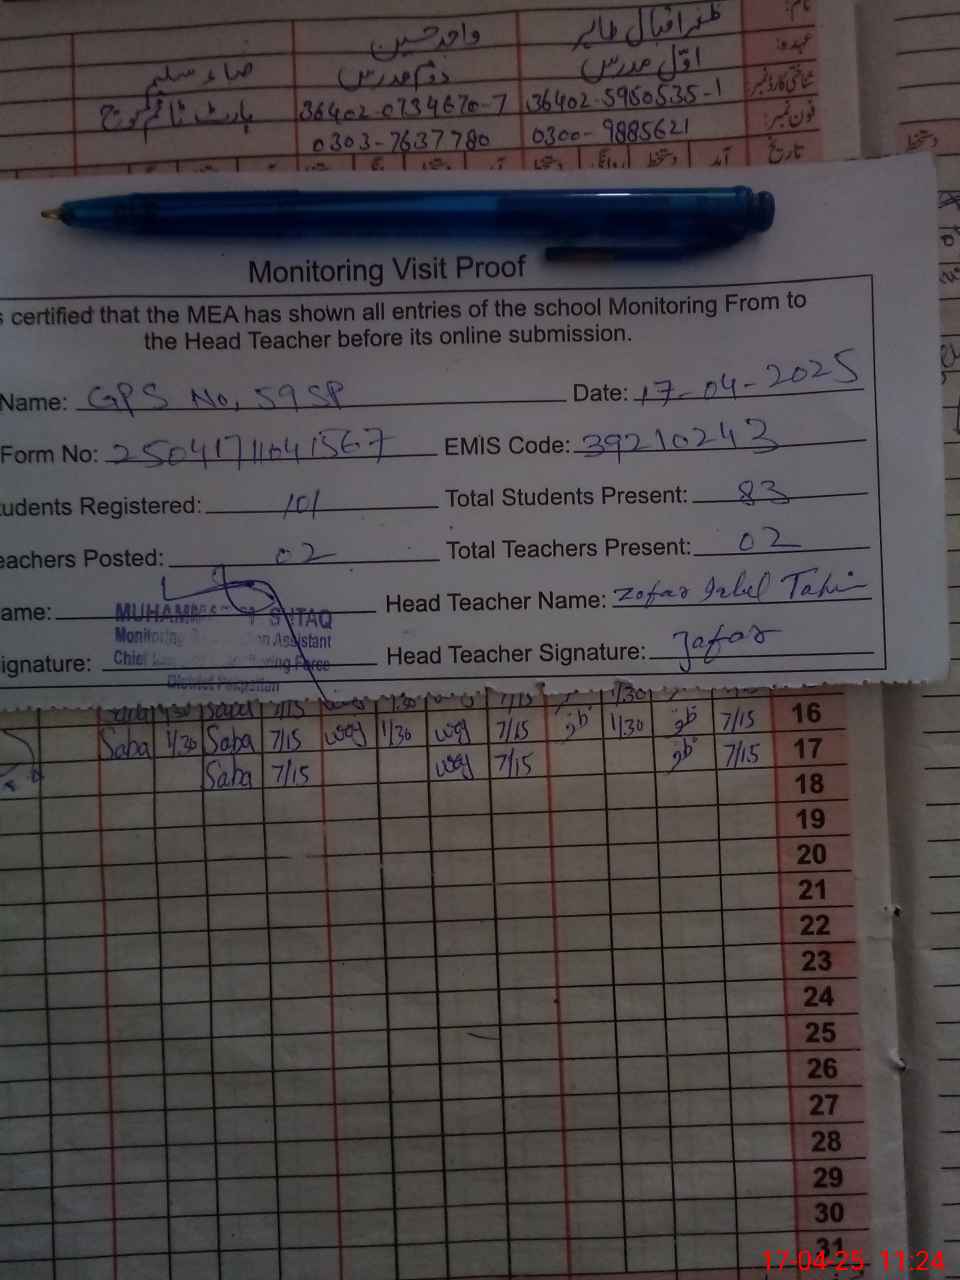 نام: ظفر اقبال طاہر واجد حسین
عہدہ: اوّل مدرس دوئم مدرس صباء سلیم
شناختی کارڈ نمبر: 36402-5960535-1 36402-0734670-7
فون نمبر: 0300-9885621 0303-7637780
تاریخ آمد دستخط روانگی دستخط
دستخط
Monitoring Visit Proof
certified that the MEA has shown all entries of the school Monitoring From to
the Head Teacher before its online submission.
Name: GPS No, 59 SP Date: 17-04-2025
Form No: 2504171104 1567 EMIS Code: 39210243
tudents Registered: 101 Total Students Present: 83
eachers Posted: 02 Total Teachers Present: 02
ame: Head Teacher Name: Zafar Iqbal Tahir
ignature: Head Teacher Signature: Zafar
Assistant
Chief
District
1/30 7/15 1/30 7/15 1/30
Saba 1/30 Saba 7/15 1/30 7/15 1/30 7/15 16
Saba 7/15 7/15 7/15 17
18
19
20
21
22
23
24
25
26
27
28
29
30
31
17-04-25 11:24